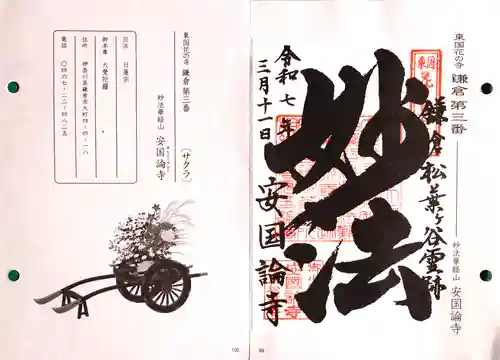 東国花の寺 鎌倉 第三番
妙法華経山 安国論寺
鎌倉松葉ヶ谷霊跡
妙法
令和七年
三月十一日
安国論寺
99
東国花の寺 鎌倉 第三番
〔サクラ〕
妙法華経山 安国論寺
宗派 日蓮宗
御本尊 大曼陀羅
住所 神奈川県鎌倉市大町四-四-一八
電話 〇四六七-二二-四八二五
100